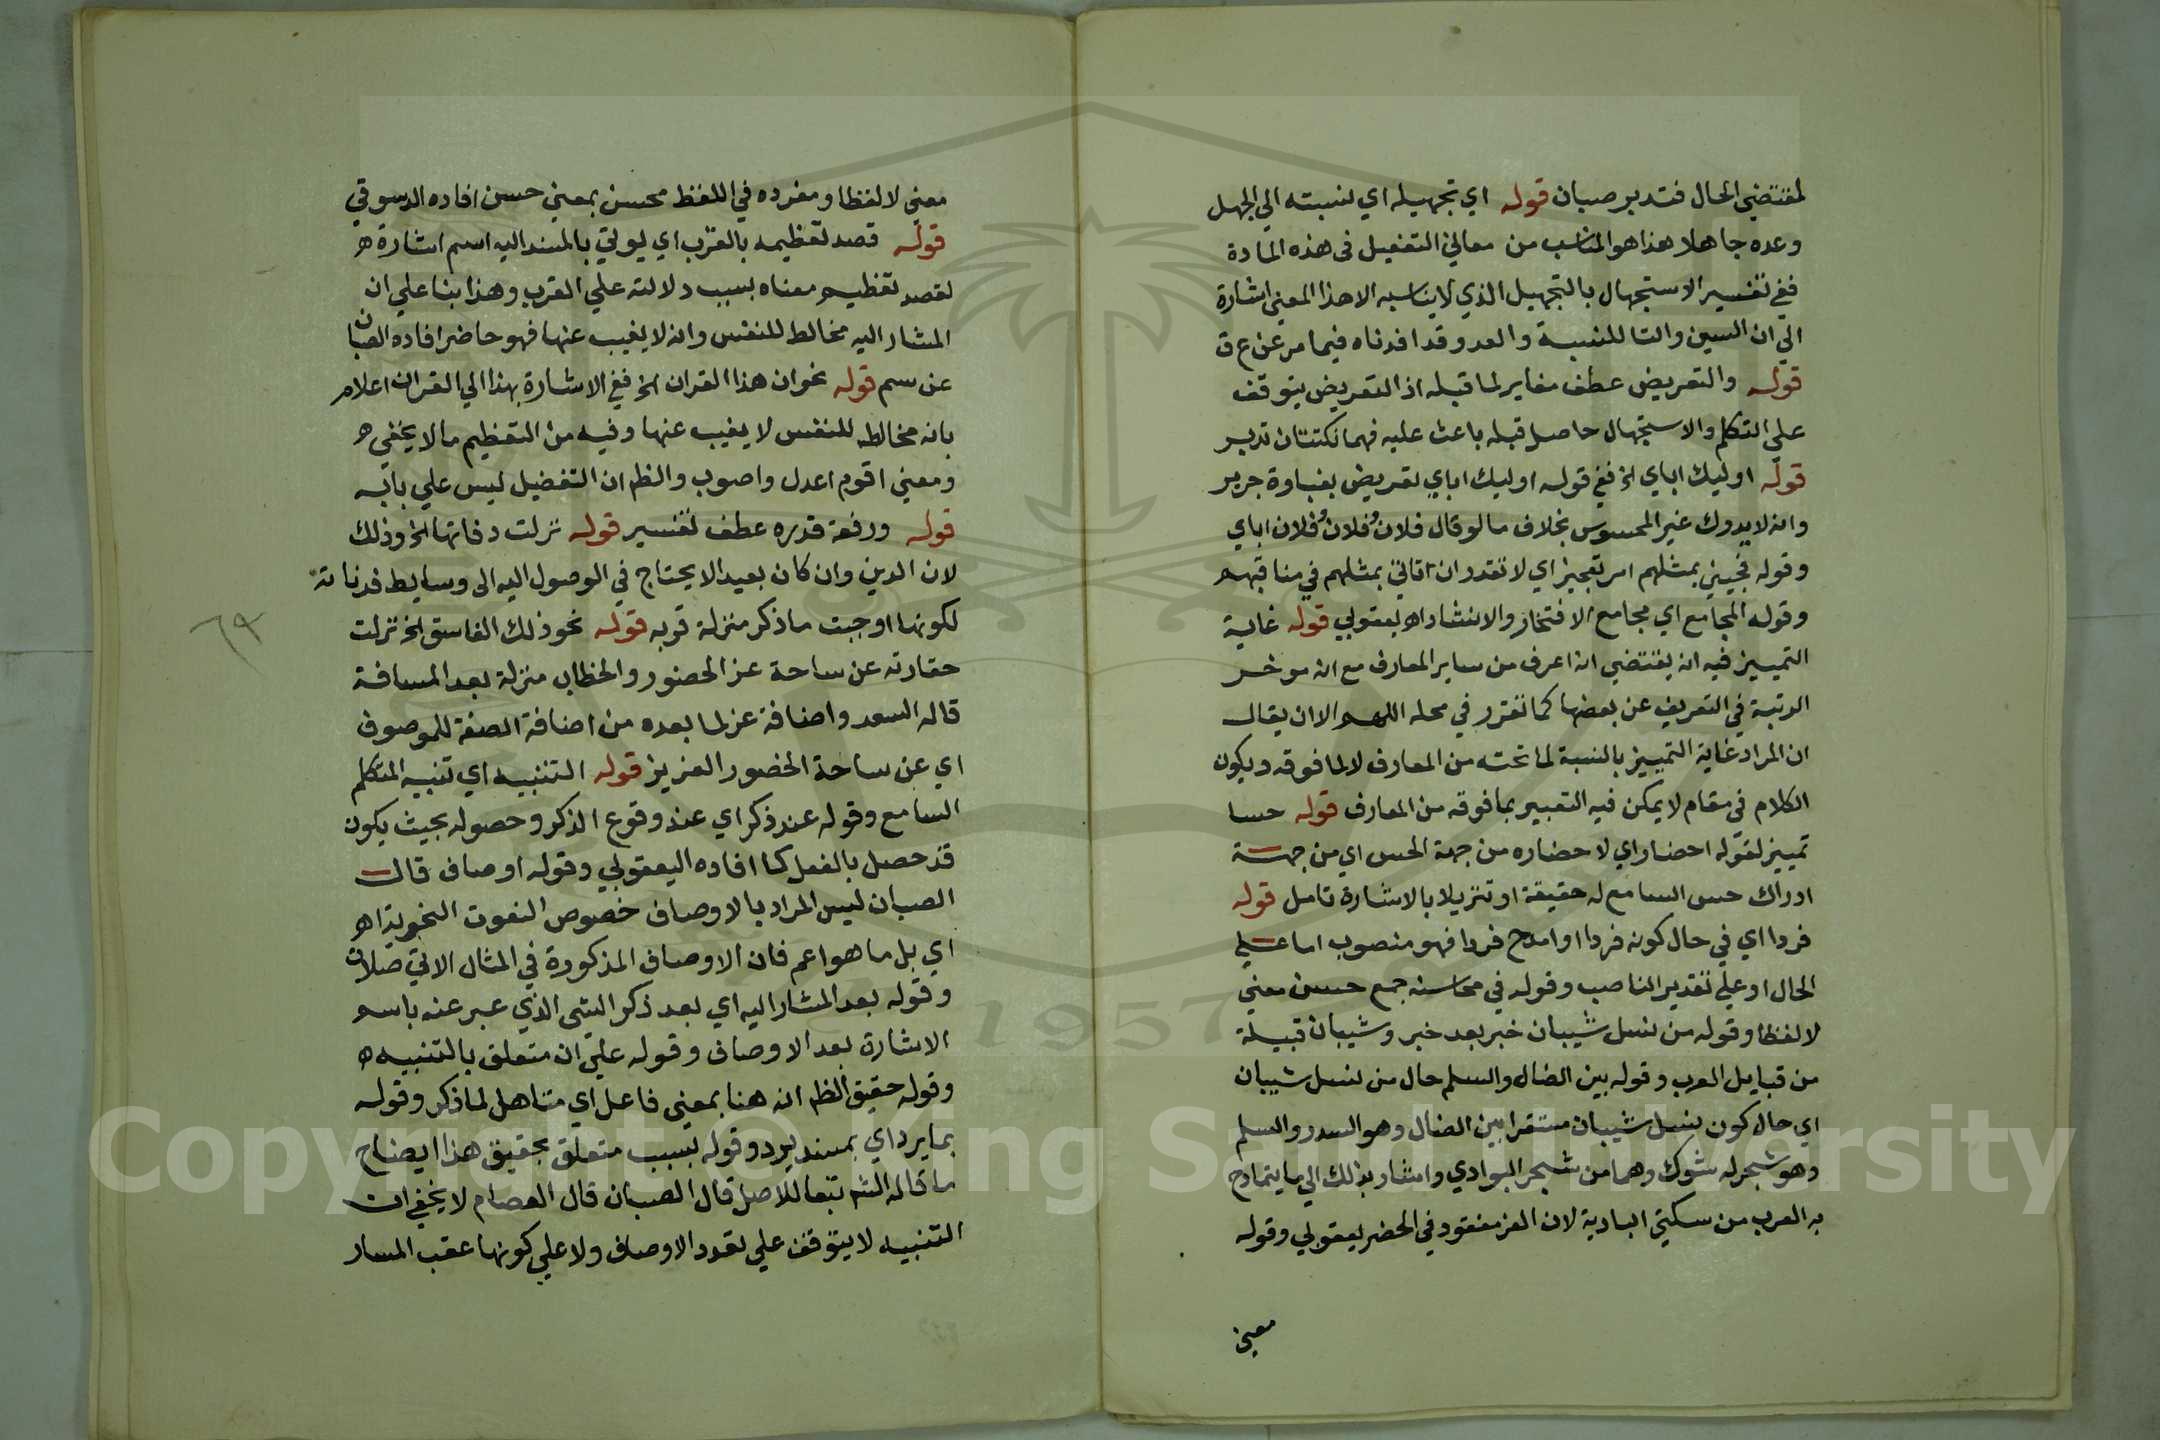 لمقتضي الحال فتدبر صبان قوله اي تجهيله اي نسبته الي الجهل
وعده جاهلا هذا هو المناسب من معاني التفعيل في هذه المادة
ففي تفسير الاستجهال بالتجهيل الذي لا يناسبه الا هذا المعني اشارة
الي ان السين والتا للنسبة والعد وقد افدناه فيما مر عن ع ق
قوله والتعريض عطف مغاير لما قبله اذ التعريض يتوقف
علي التكلم والاستجهال حاصل قبله باعث عليه فهما نكتتان تدبر
قوله اوليك اباي الخ ففي قوله اوليك اباي تعريض بغباوة جرير
وانه لا يدرك غير المحسوس بخلاف ما لو قال فلان وفلان وفلان اباي
وقوله فجيني بمثلهم امر تعجيز اي لا تقدر ان تاتي بمثلهم في مناقبهم
وقوله المجامع اي مجامع الافتخار والانشاد اه يعقوبي قوله غاية
التمييز فيه انه يقتضي انه اعرف من ساير المعارف مع انه موخر
الرتبة في التعريف عن بعضها كما تقرر في محله اللهم الا ان يقال
ان المراد غاية التمييز بالنسبة لما تحته من المعارف لا لما فوقه ويكون
الكلام في مقام لا يمكن فيه التعبير بما فوقه من المعارف قوله حسا
تمييز لقوله احضار اي لاحضاره من جهة الحس اي من جهة
ادراك حس السامع له حقيقة او تنزيلا بالاشارة تامل قوله
فردا اي في حال كونه فردا او امدح فردا فهو منصوب اما علي
الحال او علي تقدير الناصب وقوله في محاسنه جمع حسن معني
لا لفظا وقوله من نسل شيبان خبر بعد خبر وشيبان قبيلة
من قبايل العرب وقوله بين الضال والسلم حال من نسل شيبان
اي حال كون نسل شيبان مستقرا بين الضال وهو السدر والسلم
وهو شجر له شوك وهما من شجر البوادي واشار بذلك الي ما يتمادح
به العرب من سكني البادية لان العز مفقود في الحضر يعقوبي وقوله
معني
معني لا لفظا ومفرده في اللفظ محسن بمعني حسن افاده الدسوقي
قوله قصد تعظيمه بالقرب اي يوتي بالمسند اليه اسم اشارة ه
لقصد تعظيم معناه بسبب دلالته علي القرب وهذا بنا علي ان
المشار اليه مخالط للنفس وانه لا يغيب عنها فهو حاضر افاده الصبان
عن سم قوله نحو ان هذا القران الخ ففي الاشارة بهذا الي القران اعلام
بانه مخالط للنفس لا يغيب عنها وفيه من التعظيم ما لا يخفي ه
ومعني اقوم اعدل واصوب والظم ان التفضيل ليس علي بابه
قوله ورفعة قدره عطف تفسير قوله نزلت دفاتها الخ وذلك
لان الدين وان كان بعيدا لا يحتاج في الوصول اليه الي وسايط فدناته
لكونها اوجبت ما ذكر منزلة قربه قوله نحو ذلك الفاسق الخ نزلت
حقارته عن ساحة عز الحضور والخطاب منزلة بعد المسافة
قاله السعد واضافة عز لما بعده من اضافة الصفة للموصوف
اي عن ساحة الحضور العزيز قوله التنبيه اي تنبيه المتكلم
السامع وقوله عند ذكر اي عند وقوع الذكر وحصوله بحيث يكون
قد حصل بالفعل كما افاده اليعقوبي وقوله اوصاف قال
الصبان ليس المراد بالاوصاف خصوص النعوت النحوية اه
اي بل ما هو اعم فان الاوصاف المذكورة في المثال الاتي صلات
وقوله بعد المشار اليه اي بعد ذكر الشي الذي عبر عنه باسم
الاشارة بعد الاوصاف وقوله علي ان متعلق بالتنبيه ه
وقوله حقيق الظم انه هنا بمعني فاعل اي متاهل لما ذكر وقوله
بما يرد اي بمسند يرد وقوله بسبب متعلق بحقيق هذا ايضاح
ما قاله الشم تبعا للاصل قال الصبان قال العصام لا يخفي ان
التنبيه لا يتوقف علي تعدد الاوصاف ولا علي كونها عقب المسار
٦٩